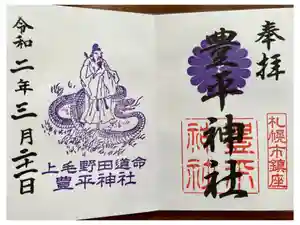 奉拝
豊平神社
札幌市鎮座
豊平
神社
令和二年三月二十一日
上毛野田道命
豊平神社